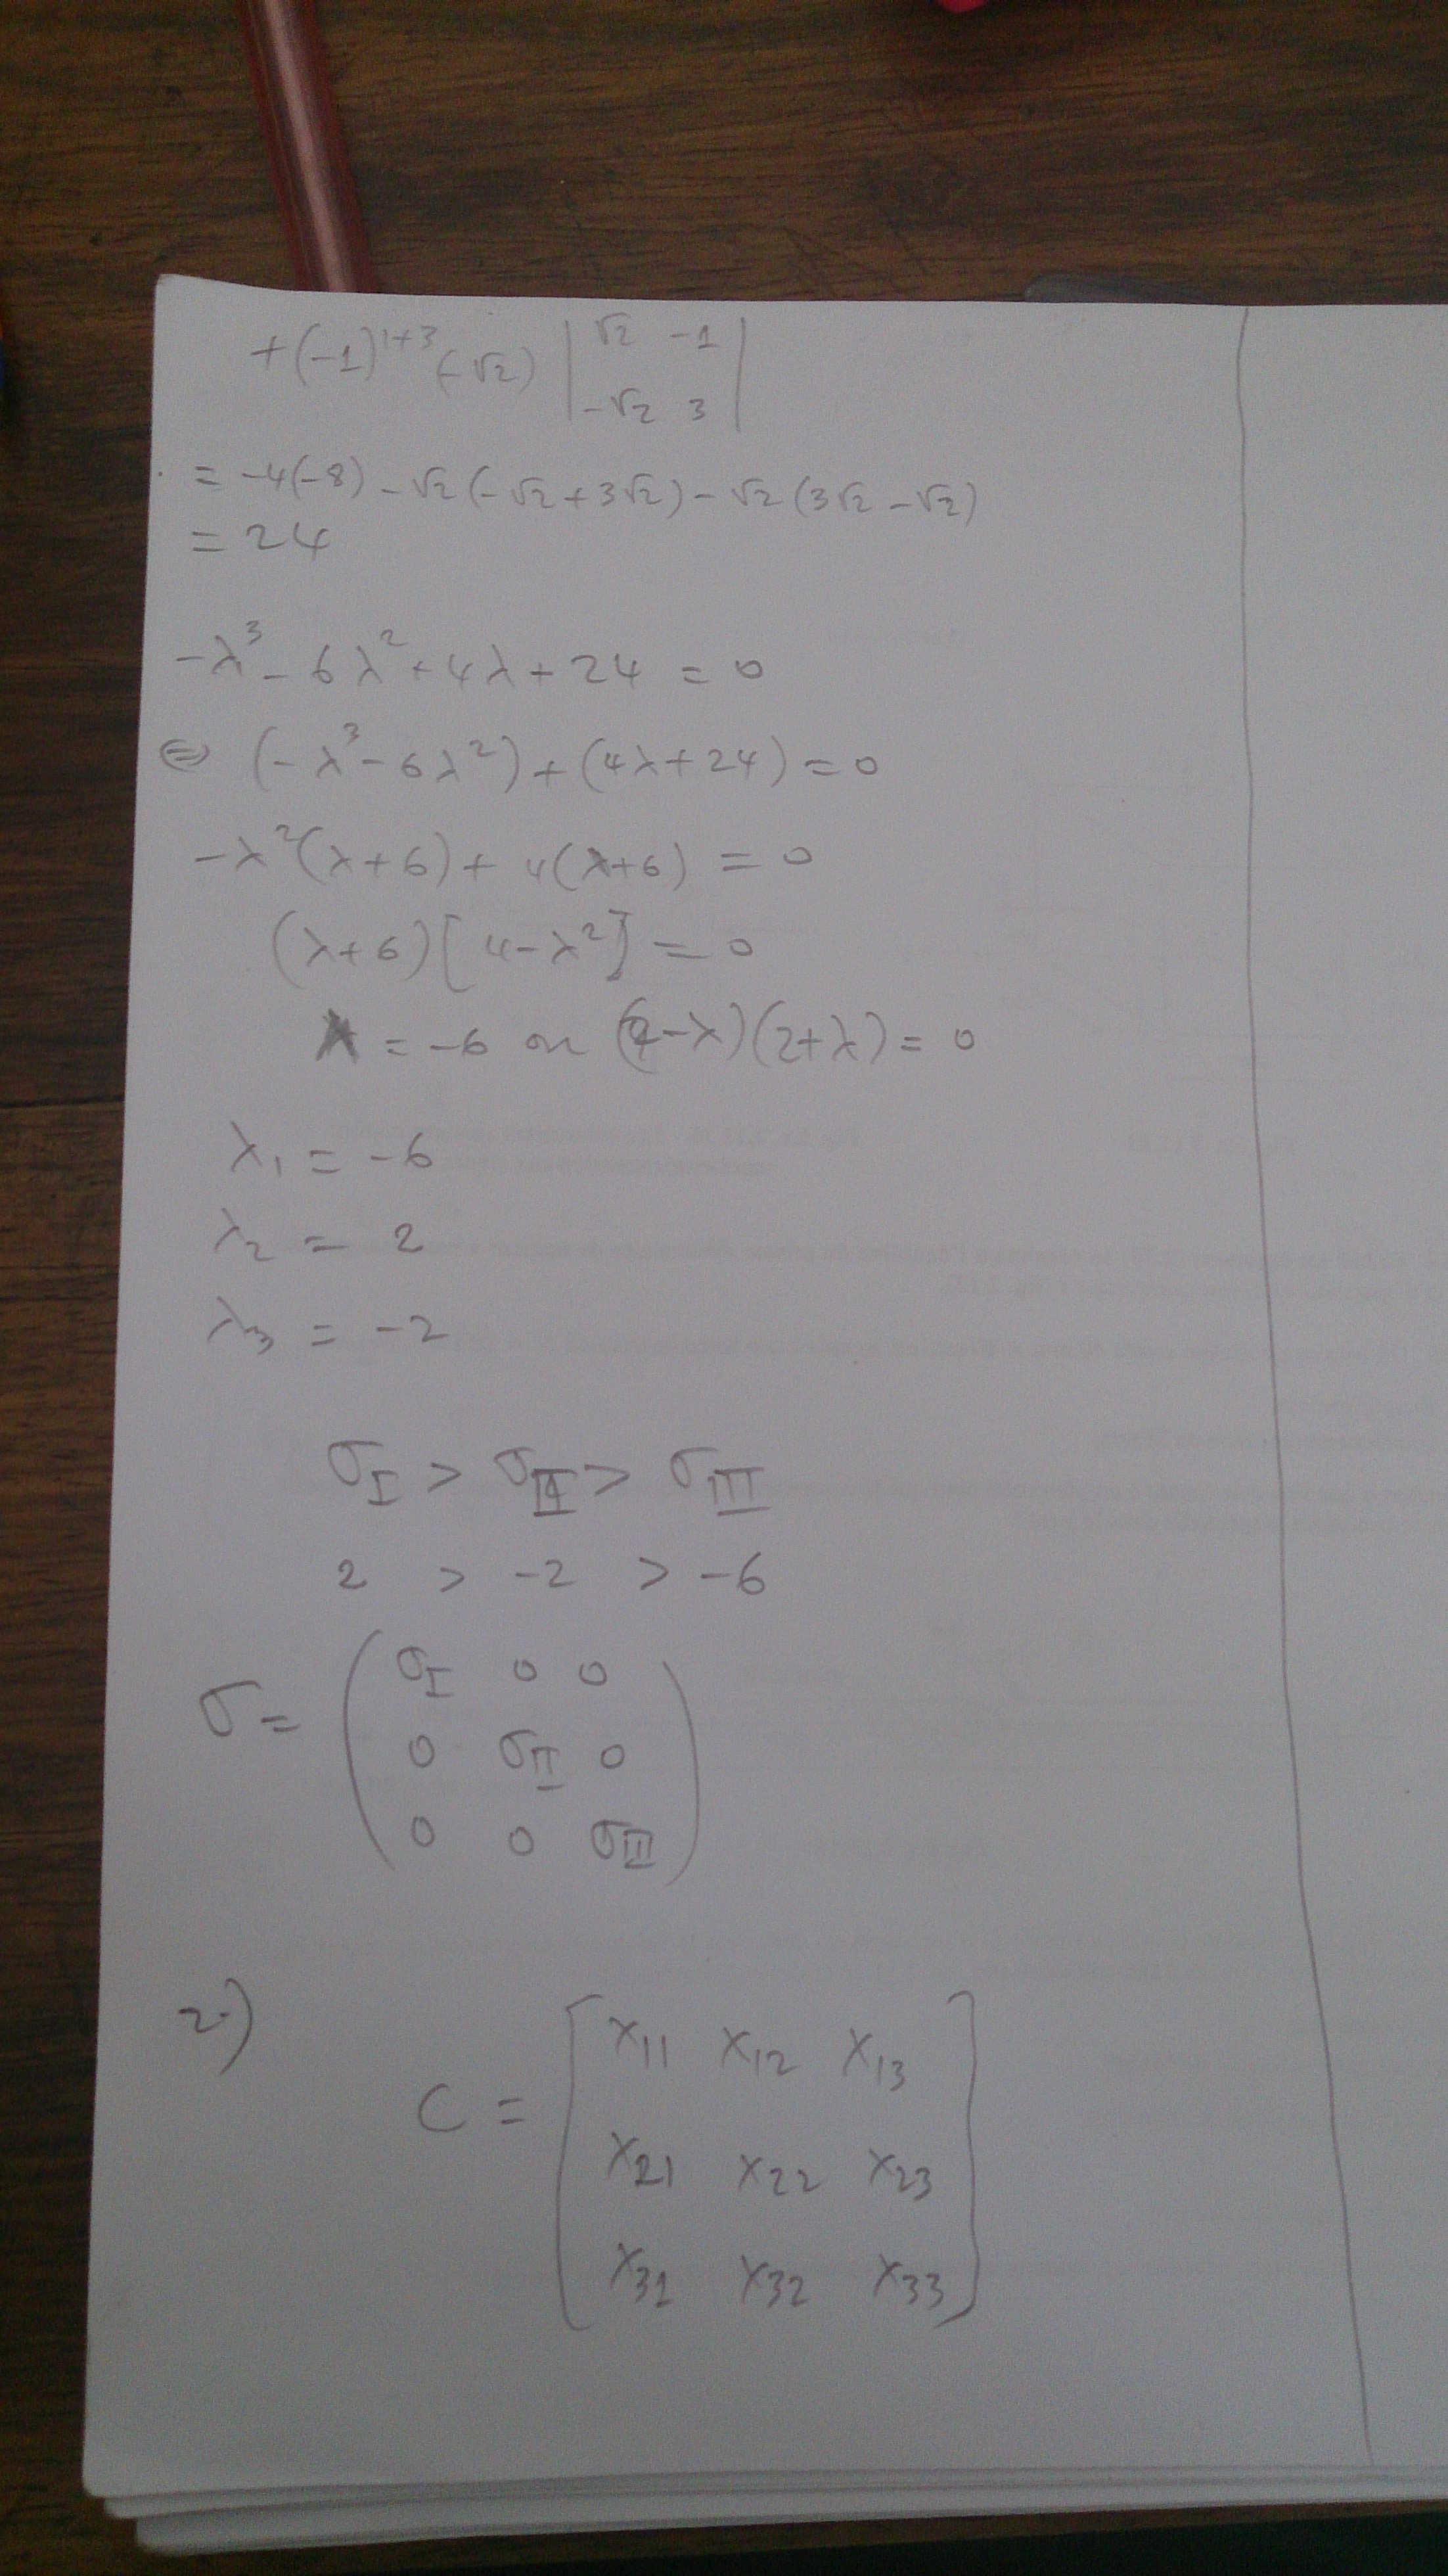 +(-1)^{1+3}(-√2) | √2 -1 |
| -√2 3 |
= -4(-8) - √2(-√2+3√2) - √2(3√2-√2)
= 24
-λ³ - 6λ² + 4λ + 24 = 0
⇔ (-λ³ - 6λ²) + (4λ + 24) = 0
-λ²(λ+6) + 4(λ+6) = 0
(λ+6)[4-λ²] = 0
λ = -6 or (2-λ)(2+λ) = 0
λ₁ = -6
λ₂ = 2
λ₃ = -2
σ_I > σ_II > σ_III
2 > -2 > -6
σ = ( σ_I 0 0
0 σ_II 0
0 0 σ_III )
2)
C = [ X₁₁ X₁₂ X₁₃
X₂₁ X₂₂ X₂₃
X₃₁ X₃₂ X₃₃ ]